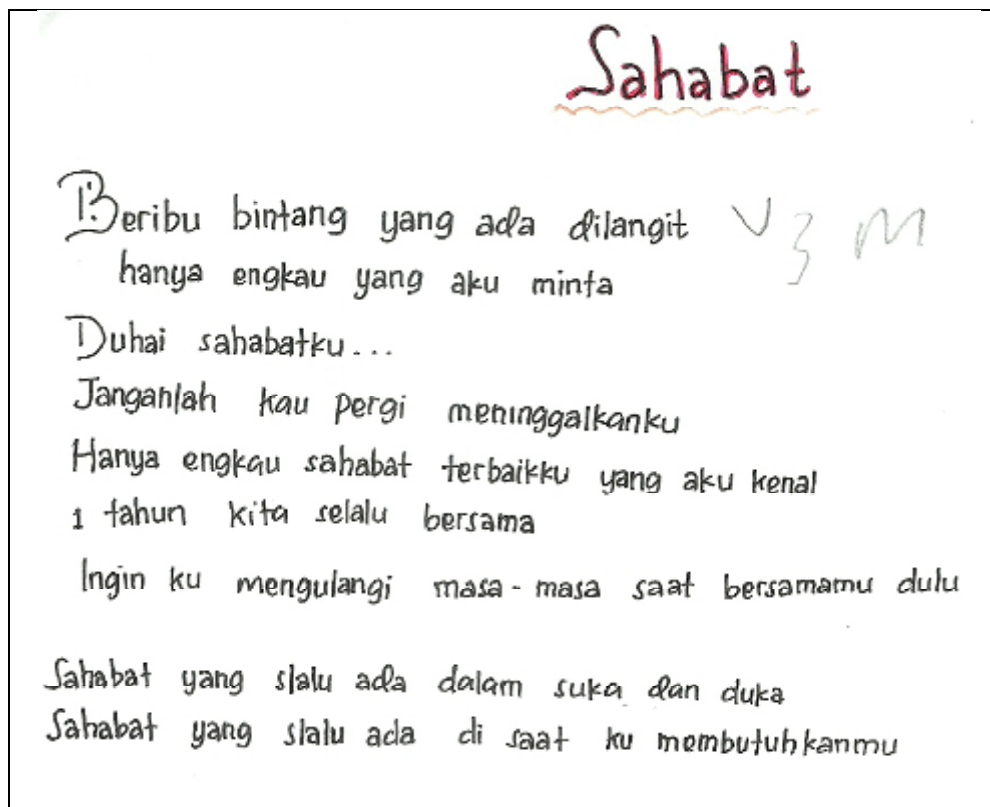 Sahabat
Beribu bintang yang ada dilangit V 3 M
hanya engkau yang aku minta
Duhai sahabatku...
Janganlah kau pergi meninggalkanku
Hanya engkau sahabat terbaikku yang aku kenal
1 tahun kita selalu bersama
Ingin ku mengulangi masa-masa saat bersamamu dulu
Sahabat yang slalu ada dalam suka dan duka
Sahabat yang slalu ada di saat ku membutuhkanmu